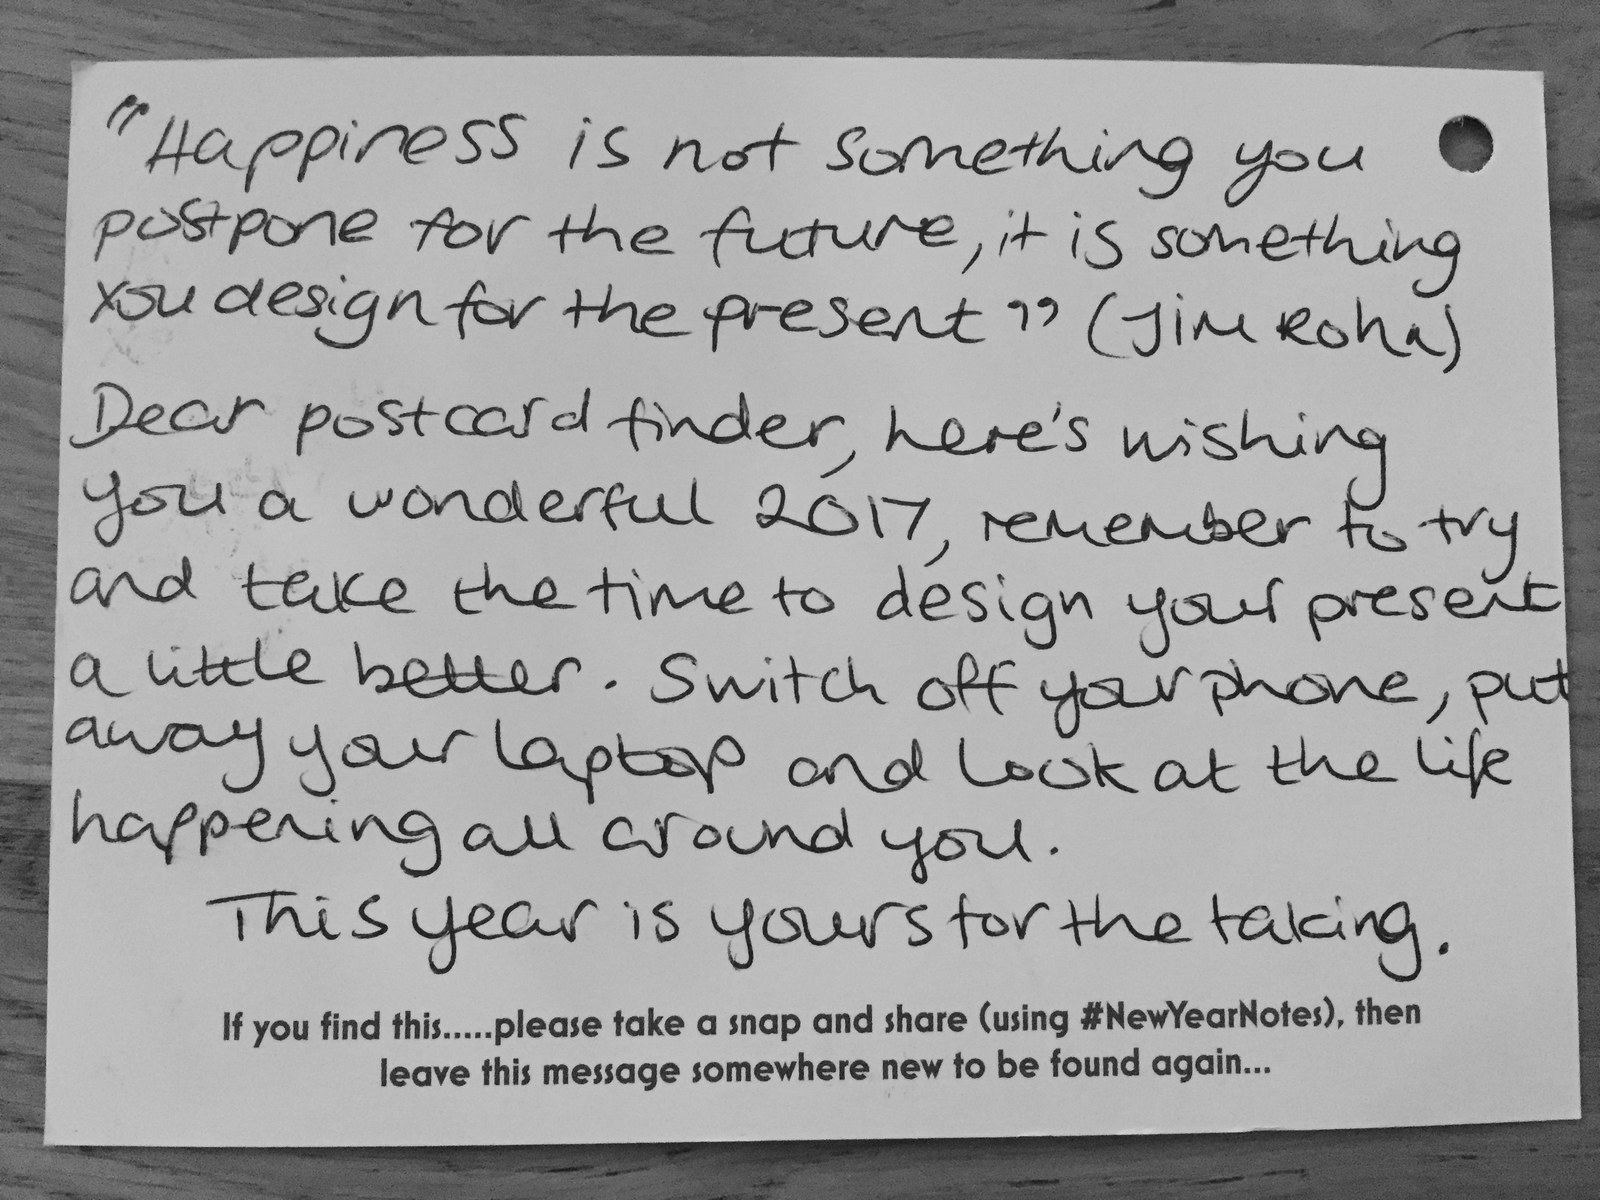 "Happiness is not something you
postpone for the future, it is something
you design for the present" (Jim Rohn)
Dear postcard finder, here's wishing
you a wonderful 2017, remember to try
and take the time to design your present
a little better. Switch off your phone, put
away your laptop and look at the life
happening all around you.
This year is yours for the taking.
If you find this.....please take a snap and share (using #NewYearNotes), then
leave this message somewhere new to be found again...